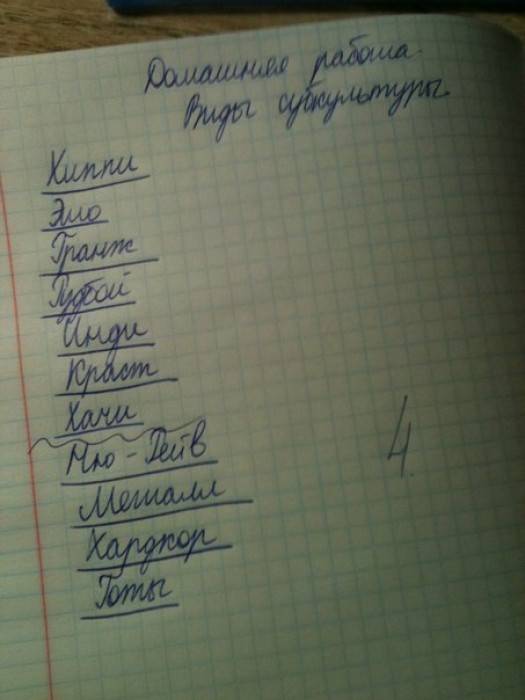 Домашняя работа.
Виды субкультуры.
Хиппи
Эмо
Гранж
Рудбой
Инди
Краст
Хачи
Нью-Вейв
Металл
Хардкор
Готы
4